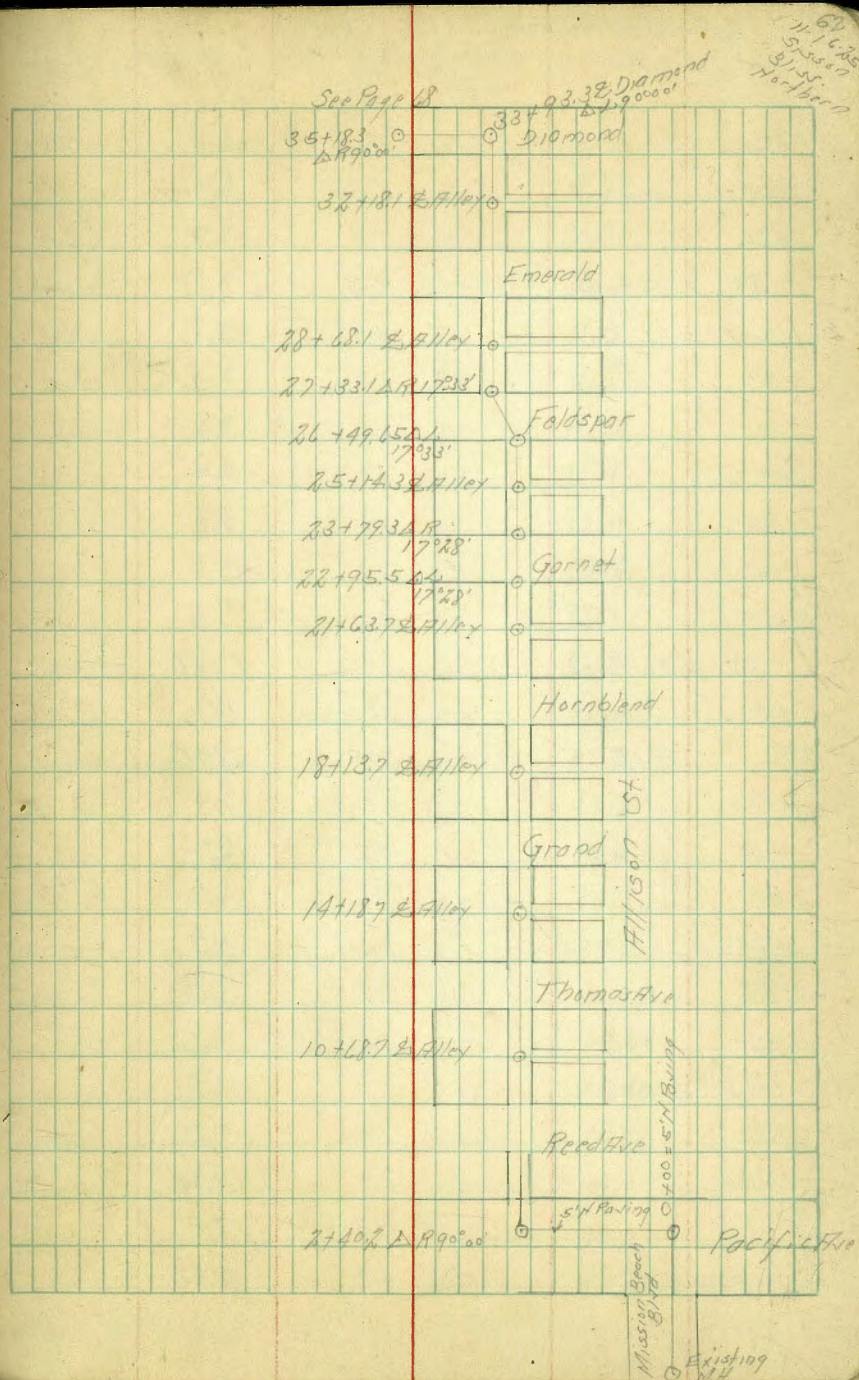 62
11-16-25
Sisson
Bliss
Northern
See Page 68
33+93.3 ℄ Diamond
Δ L 90°00'
35+18.3
Δ R 90°00'
Diamond
32+18.1 ℄ Alley
Emerald
28+68.1 ℄ Alley
27+33.1 Δ R 17°33'
Feldspar
26+49.65 Δ L
17°33'
25+14.3 ℄ Alley
23+79.3 Δ R
17°28'
Garnet
22+95.5 Δ L
17°28'
21+63.7 ℄ Alley
Hornblend
18+13.7 ℄ Alley
Allison St.
Grand
14+18.7 ℄ Alley
Thomas Ave
10+68.7 ℄ Alley
0+00 = 5'N Paving
Reed Ave
5'N Paving
2+40.2 Δ R 90°00'
Pacific Ave
Mission Beach
Blvd
Existing
MH